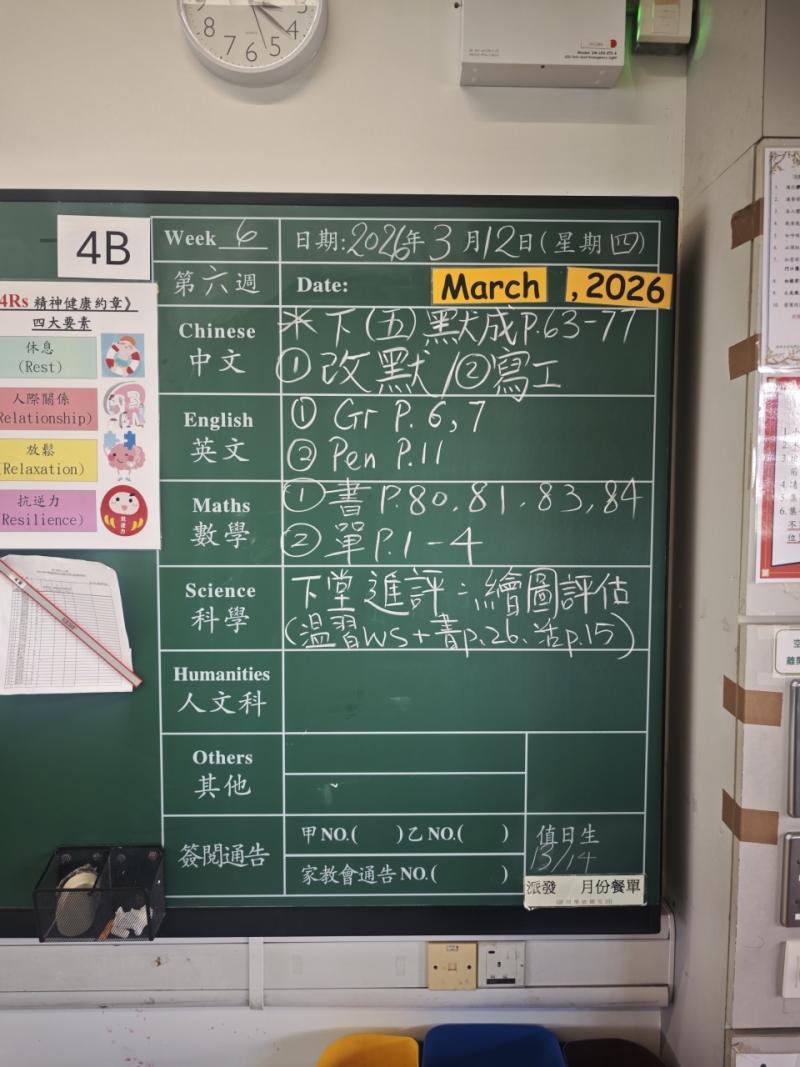 8 7 6 5 4
4B
Week 6
日期:2026年3月12日(星期四)
第六週
Date: March , 2026
Chinese
中文
※下(五)默成P.63-77
①改默/②寫工
English
英文
① Gr P.6,7
② Pen P.11
Maths
數學
①書P.80,81,83,84
②單P.1-4
Science
科學
下堂進評:繪圖評估
(温習WS+書p.26、活p.15)
Humanities
人文科
Others
其他
簽閱通告
甲NO.( )乙NO.( )
家教會通告NO.( )
值日生
13/14
派發 月份餐單
4Rs 精神健康約章》
四大要素
休息
(Rest)
人際關係
Relationship)
放鬆
(Relaxation)
抗逆力
Resilience)